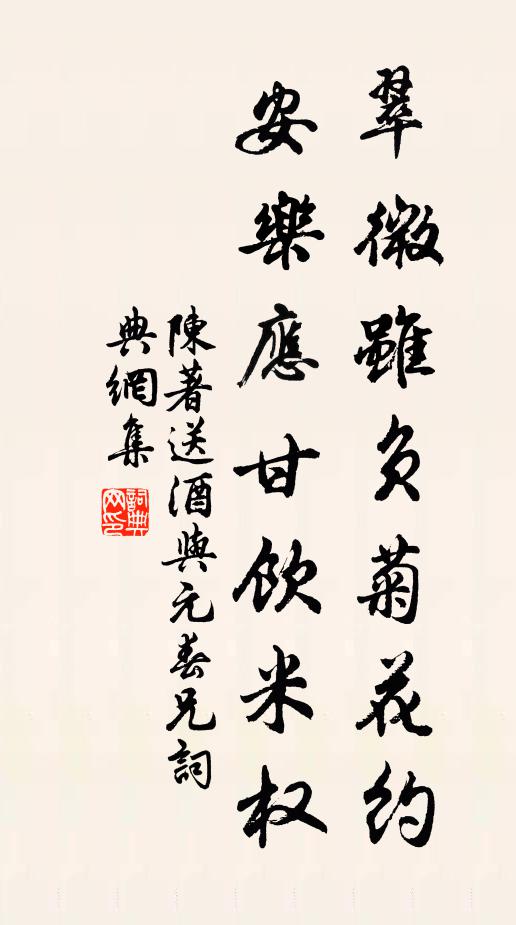 翠微雖負菊花約
安樂應甘飲米权
陳著送酒與元春兄詞
典網集
詞典网印